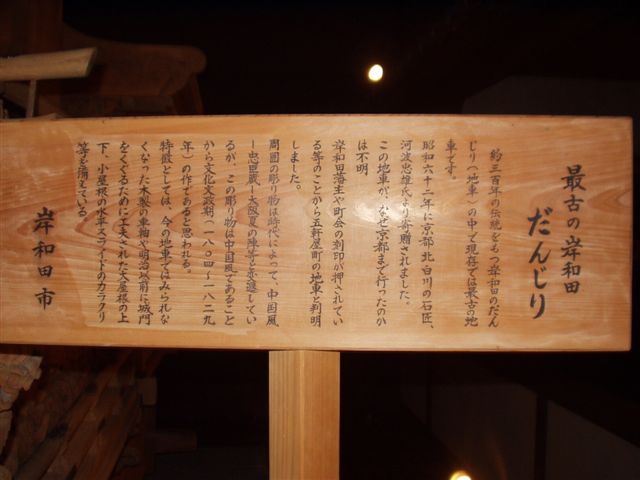 最古の岸和田
だんじり
約三百年の伝統をもつ岸和田のだん
じり（地車）の中で現存では最古の地
車です。
昭和六十二年に京都北白川の石匠、
河波忠兵衛氏より寄贈されました。
この地車が、なぜ京都まで行ったのか
は不明。
岸和田藩主や町会の刻印が押されてい
る等のことから五軒屋町の地車と判明
しました。
周囲の彫り物は時代によって、中国風
ー忠臣蔵ー大阪夏の陣等と変遷してい
るが、この彫り物は中国風であること
から文化文政期（一八〇四〜一八二九
年）の作であると思われる。
特徴としては、今の地車ではみられな
くなった木製の車軸や明治以前に城門
をくぐるために工夫された大屋根の上
下、小屋根の水平スライドのカラクリ
等を備えている。
岸和田市